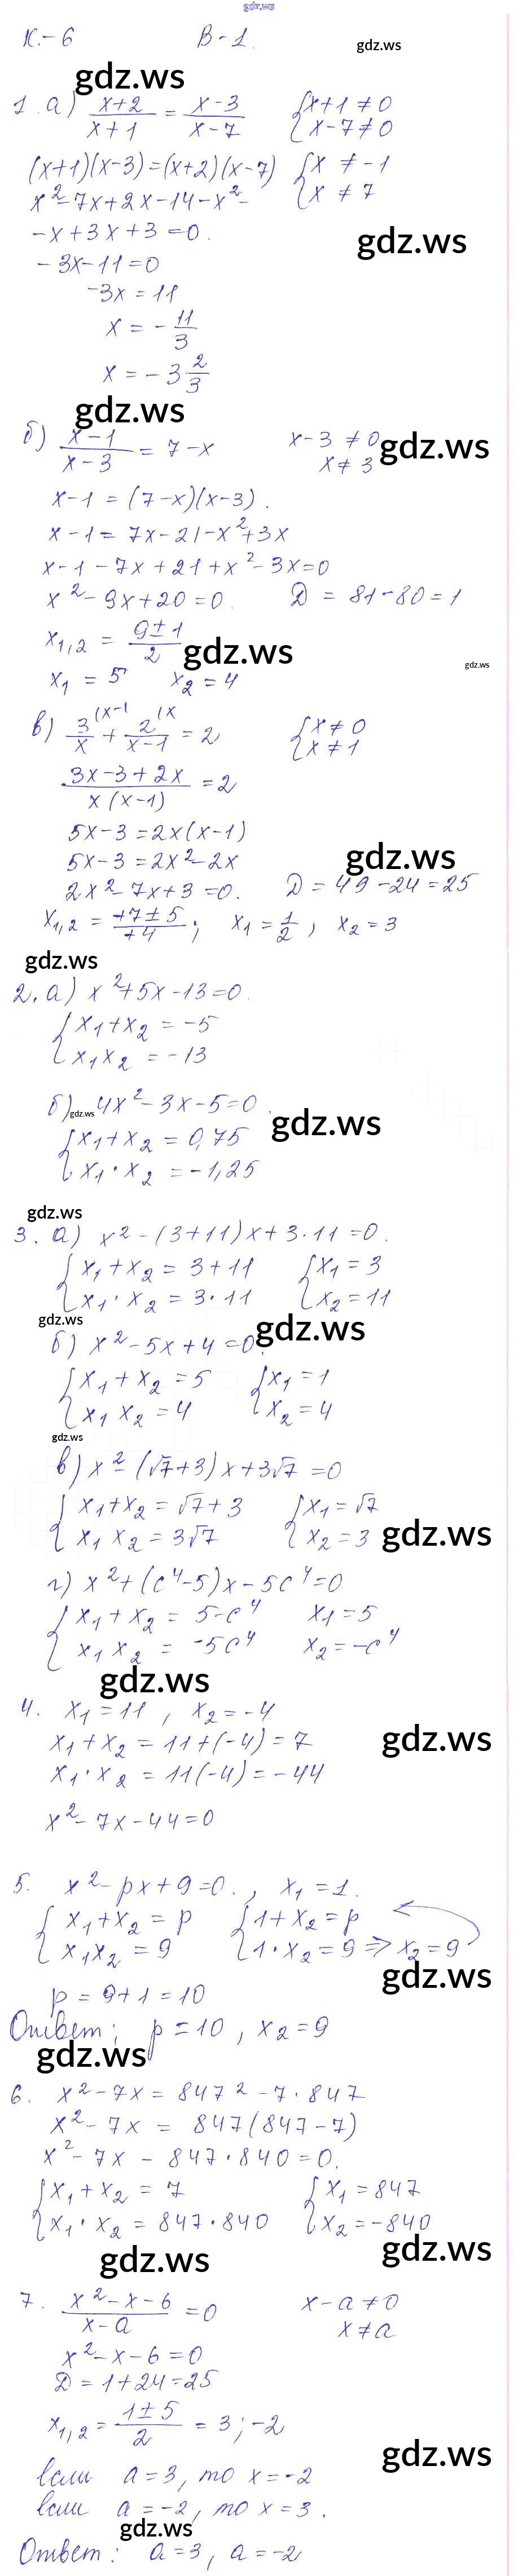 gdz.ws
К.-6 В-1.
gdz.ws
gdz.ws
1. а) (x+2)/(x+1) = (x-3)/(x-7) {x+1≠0
x-7≠0
(x+1)(x-3)=(x+2)(x-7) {x ≠ -1
x ≠ 7
x²-7x+2x-14-x²-
-x+3x+3=0.
gdz.ws
-3x-11=0
-3x=11
x = -11/3
x = -3 2/3
gdz.ws
б) (x-1)/(x-3) = 7-x x-3 ≠0
x≠3
gdz.ws
x-1 = (7-x)(x-3).
x-1 = 7x-21-x²+3x
x-1-7x+21+x²-3x=0
x²-9x+20=0. D = 81-80=1
x₁,₂ = (9±1)/2
gdz.ws
gdz.ws
x₁ = 5 x₂ = 4
в) 3/x (x-1 + 2/(x-1) (x = 2 {x≠0
x≠1
(3x-3+2x)/(x(x-1)) = 2
5x-3=2x(x-1)
5x-3=2x²-2x
gdz.ws
2x²-7x+3=0. D=49-24=25
x₁,₂ = (+7±5)/(+4); x₁=1/2, x₂=3
gdz.ws
2. а) x²+5x-13=0.
{x₁+x₂ = -5
x₁x₂ = -13
б) 4x²-3x-5=0
gdz.ws
gdz.ws
{x₁+x₂ = 0,75
x₁·x₂ = -1,25
gdz.ws
3. а) x²-(3+11)x+3·11=0.
{x₁+x₂=3+11 {x₁=3
x₁·x₂=3·11 x₂=11
gdz.ws
gdz.ws
б) x²-5x+4=0.
{x₁+x₂=5 {x₁=1
x₁x₂=4 x₂=4
gdz.ws
в) x²-(√7+3)x+3√7=0
{x₁+x₂=√7+3 {x₁=√7
x₁x₂=3√7 x₂=3
gdz.ws
г) x²+(c⁴-5)x-5c⁴=0
{x₁+x₂ = 5-c⁴ x₁=5
x₁x₂ = -5c⁴ x₂=-c⁴
gdz.ws
4. x₁=11, x₂=-4
gdz.ws
x₁+x₂=11+(-4)=7
x₁·x₂=11(-4)=-44
x²-7x-44=0
5. x²-px+9=0., x₁=1.
{x₁+x₂=p {1+x₂=p
x₁x₂=9 1·x₂=9⇒x₂=9
gdz.ws
p=9+1=10
Ответ: p=10, x₂=9
gdz.ws
6. x²-7x=847²-7·847
x²-7x = 847(847-7)
x²-7x-847·840=0.
{x₁+x₂ = 7 {x₁=847
x₁·x₂ = 847·840 x₂=-840
gdz.ws
gdz.ws
7. (x²-x-6)/(x-a) = 0 x-a≠0
x≠a
x²-x-6=0
D=1+24=25
x₁,₂=(1±5)/2 = 3; -2
gdz.ws
если a=3, то x=-2
если a=-2, то x=3.
gdz.ws
Ответ: a=3, a=-2